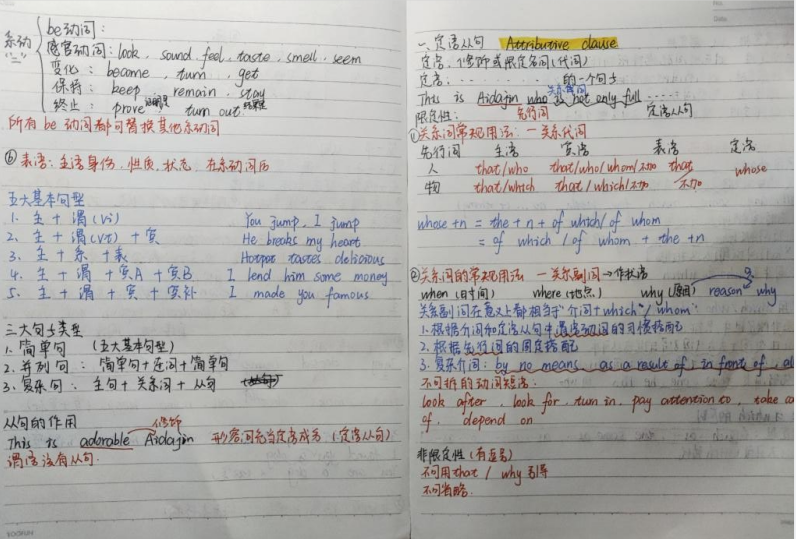 系动
"二"
be动词:
感官动词: look, sound, feel, taste, smell, seem
变化: became, turn, get
保持: keep remain, stay
终止: prove turn out
所有 be 动词都可替换其他系动词
⑥ 表语: 主语身份、性质、状态, 在系动词后
五大基本句型
1. 主 + 谓 (vi) You jump, I jump
2. 主 + 谓 (vt) + 宾 He breaks my heart
3. 主 + 系 + 表 Hotpot tastes delicious
4. 主 + 谓 + 宾A + 宾B I lend him some money
5. 主 + 谓 + 宾 + 宾补 I made you famous
三大句子类型
1. 简单句 (五大基本句型)
2. 并列句: 简单句 + 连词 + 简单句
3. 复杂句: 主句 + 关系词 + 从句
从句的作用
修饰
This is adorable Aidajin 形容词充当定语成为 (定语从句)
谓语没有从句.
一、定语从句 Attributive clause
定语: 修饰或限定名词(代词)
定语: ………………… 的一个句子
关系代词
This is Aidajin who is not only full ……
限定性: 先行词 定语从句
①关系词常规用法: 一关系代词
先行词 主语 宾语 表语 定语
人 that/who that/who/whom/不加 that whose
物 that/which that/which/不加 不加
whose +n = the +n + of which/of whom
= of which / of whom + the +n
②关系词的常规用法 一关系副词→作状语
when (时间) where (地点) why (原因) reason why
关系副词在意义上都相当于"介词+which"/whom"
1. 根据介词和定语从句中谓语动词的习惯搭配
2. 根据先行词的固定搭配
3. 复杂介词: by no means, as a result of, in front of,
不可拆的动词短语:
look after, look for, turn in, pay attention to, take ca
of, depend on
非限定性 (有逗号)
不可用that / why 引导
不可省略.